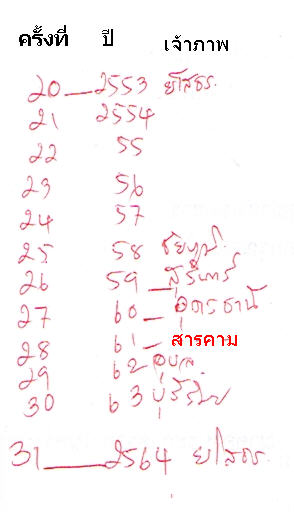 ครั้งที่ ปี เจ้าภาพ
20 — 2553 ยโสธร
21 2554
22 55
23 56
24 57
25 58 ชัยภูมิ
26 59 — สุรินทร์
27 60 — อุดรธานี
28 61 — สารคาม
29 62 อุบล
30 63 บุรีรัมย์
31 — 2564 ยโสธร